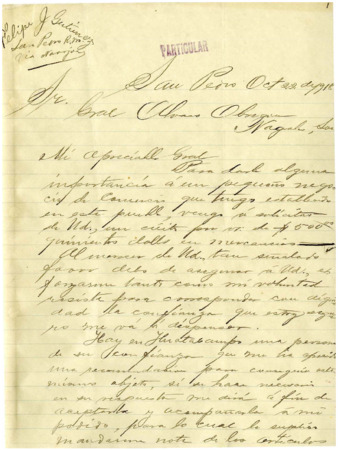 1
Felipe J Gutierrez
San Pedro R. M.
Via Navojoa
PARTICULAR
San Pedro Oct 22 de 191
Sr.
Gral Alvaro Obregon
Nogales, Son
Mi apreciable Gral
Para darle alguna
importancia a un pequeño nego-
cio de comercio que tengo establecido
en este pueblo, vengo a solicitar
de Ud, un credito por v. de $500.00
quinientos dolls en mercancias
Al merecer de Ud, tan señalado
favor debo de asegurar a Ud,
forzarme tanto como mi voluntad
resista para corresponder con dig-
dad la confianza que estoy segu-
ro me va a dispensar.
Hay en Huatabampo una persona
de su confianza que me ha
una recomendacion para conseguir este
mismo objeto, si se hace necesario
en su respuesta me dirá a fin de
aceptarla y acompañarla a mi
pedido, para lo cual le suplico
mandarme nota de los articulos